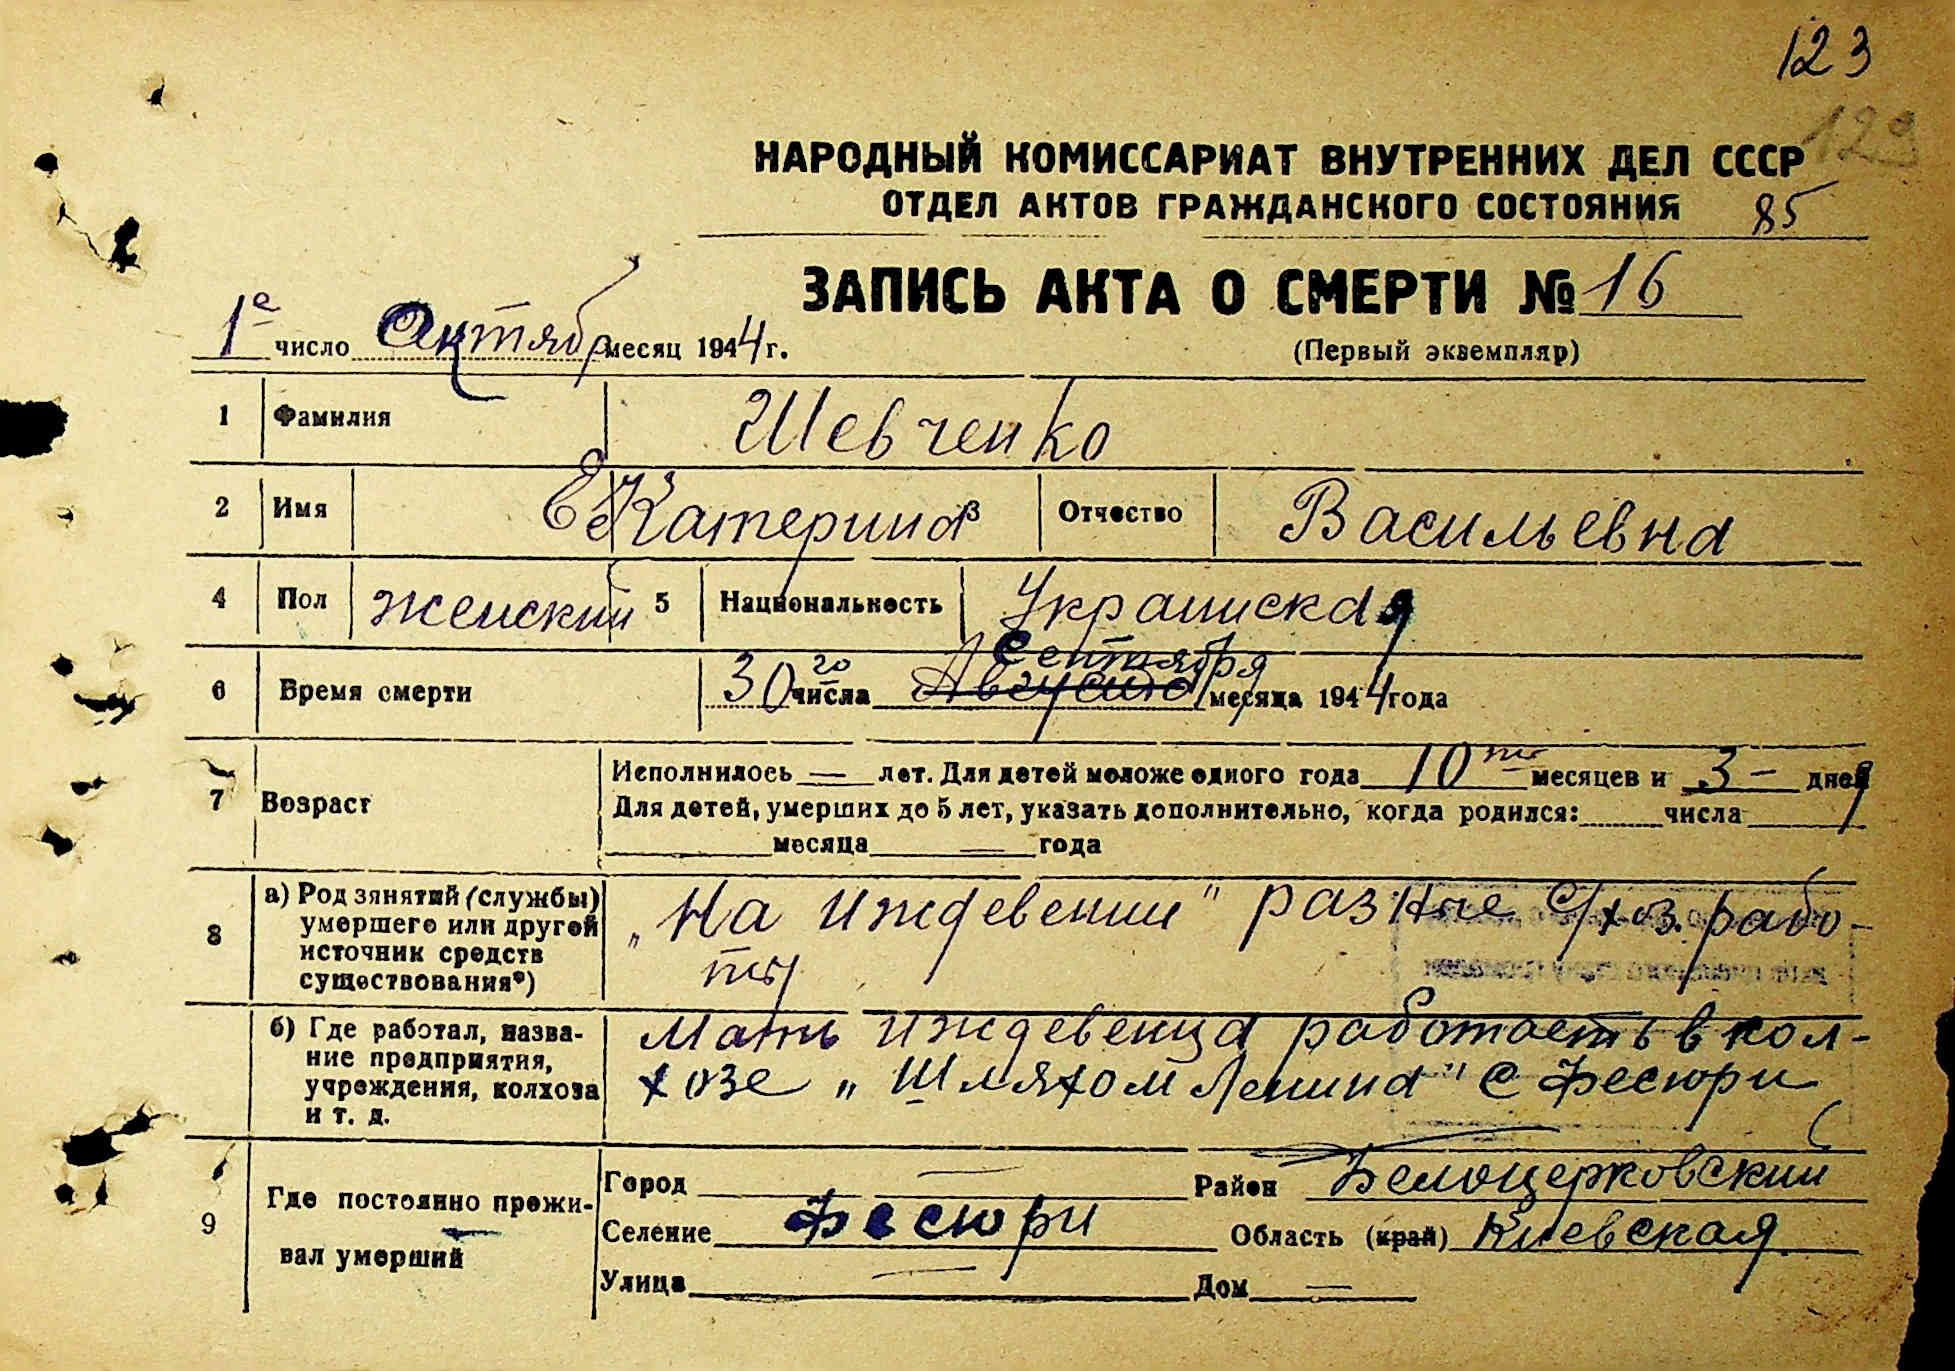 123
129
НАРОДНЫЙ КОМИССАРИАТ ВНУТРЕННИХ ДЕЛ СССР
ОТДЕЛ АКТОВ ГРАЖДАНСКОГО СОСТОЯНИЯ 85
ЗАПИСЬ АКТА О СМЕРТИ № 16
1е число Октябр месяц 1944 г.
(Первый экземпляр)
1 Фамилия Шевченко
2 Имя Екатерина 3 Отчество Васильевна
4 Пол женский 5 Национальность Украинская
Сентября
6 Время смерти 30го числа Августа месяца 1944 года
Исполнилось — лет. Для детей моложе одного года 10ти месяцев и 3 — дней
7 Возраст Для детей, умерших до 5 лет, указать дополнительно, когда родился: числа
месяца — года
8 а) Род занятий (службы) умершего или другой источник средств существования*) „На иждевении" разные с/хоз. рабо-
ты
б) Где работал, назва-
ние предприятия,
учреждения, колхоза
и т. д.
Мать иждевенца работаеть в кол-
хозе „Шляхом Ленина" с Фесюри
9 Где постоянно прожи-
вал умерший
Город — Район Белоцерковский
Селение Фесюри Область (край) Киевская
Улица — Дом —